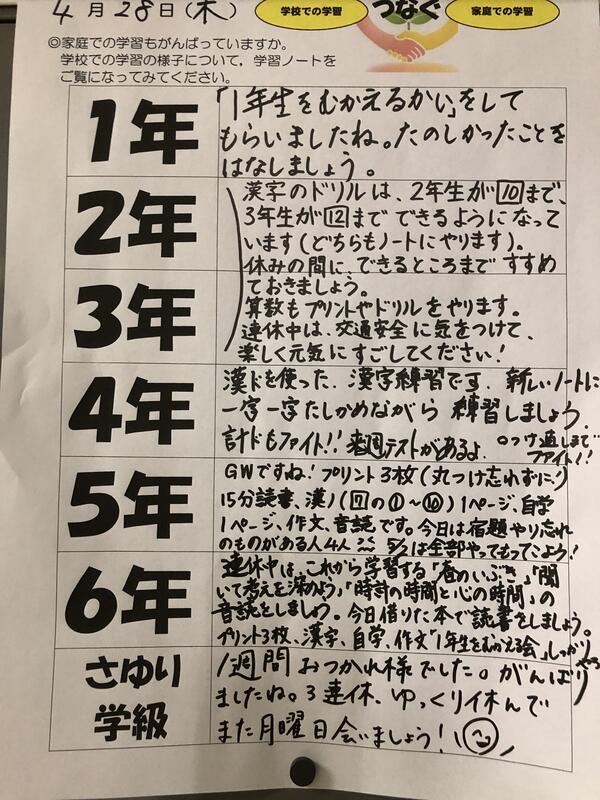 4月28日(木)
学校での学習
つなぐ
家庭での学習
◎家庭での学習もがんばっていますか。
学校での学習の様子について,学習ノートを
ご覧になってみてください。
1年
「1年生をむかえるかい」をして
もらいましたね。たのしかったことを
はなしましょう。
2年
漢字のドリルは、2年生が10まで、
3年生が12までできるようになって
います(どちらもノートにやります)。
休みの間に、できるところまですすめ
ておきましょう。
3年
算数もプリントやドリルをやります。
連休中は、交通安全に気をつけて、
楽しく元気にすごしてください!
4年
漢ドを使った、漢字練習です. 新しいノートに
一字一字たしかめながら 練習しましょう.
計ドもファイト!! 来週テストがあるよ.
○つけ直しまで
ファイト!!
5年
GWですね!プリント3枚(丸つけ忘れずに!)
15分読書、漢ノ(7の①~⑩)1ページ、自学
1ページ、作文、音読です。今日は宿題やり忘れ
のものがある人4人 5/2は全部やってもってこよう!
6年
連休中は、これから学習する「春のいぶき」「聞
いて考えを深めよう」「時計の時間と心の時間」の
音読をしましょう。今日借りた本で読書をしましょう。
プリント3枚、漢字、自学、作文「1年生をむかえる会」しっかりやろう
さゆり
学級
1週間おつかれ様でした。がんばり
ましたね。3連休、ゆっくり休んで
また月曜日会いましょう!